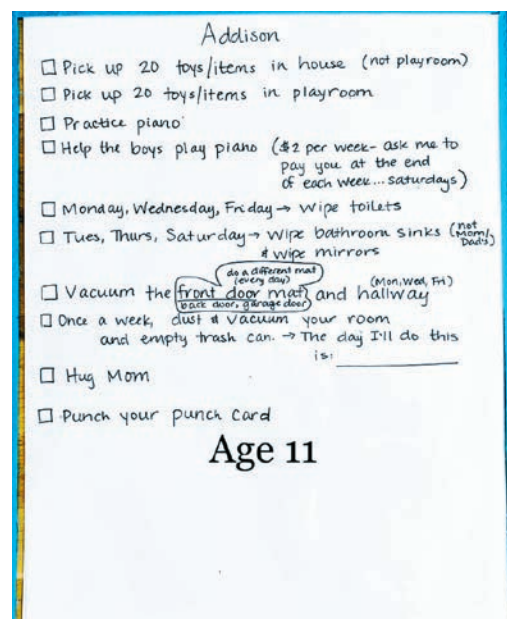 Addison
☐ Pick up 20 toys/items in house (not playroom)
☐ Pick up 20 toys/items in playroom
☐ Practice piano
☐ Help the boys play piano ($2 per week- ask me to
pay you at the end
of each week... Saturdays)
☐ Monday, Wednesday, Friday → wipe toilets
☐ Tues, Thurs, Saturday → wipe bathroom sinks (not Mom/Dad's)
& wipe mirrors
do a different mat
(every day)
☐ Vacuum the front door mat, and hallway (Mon, Wed, Fri)
back door, garage door
☐ Once a week, dust & vacuum your room
and empty trash can. → The day I'll do this
is: ____________
☐ Hug Mom
☐ Punch your punch card
Age 11